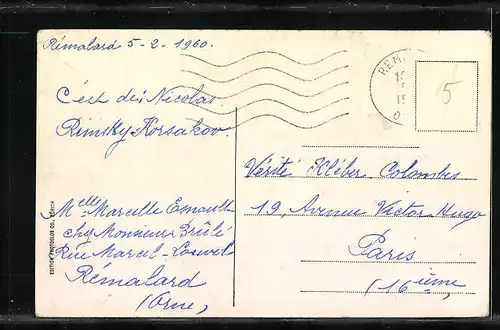 Rémalard 5-2-1960.
C'est de: Nicolas
Rimsky Korsakov.
Melle Marcelle Esnault
chez Monsieur Brûlé
Rue Marcel-Louvel
Rémalard
(Orne)
Vérité Kléber-Colombes
19, Avenue Victor-Hugo
Paris
(16ième)
15